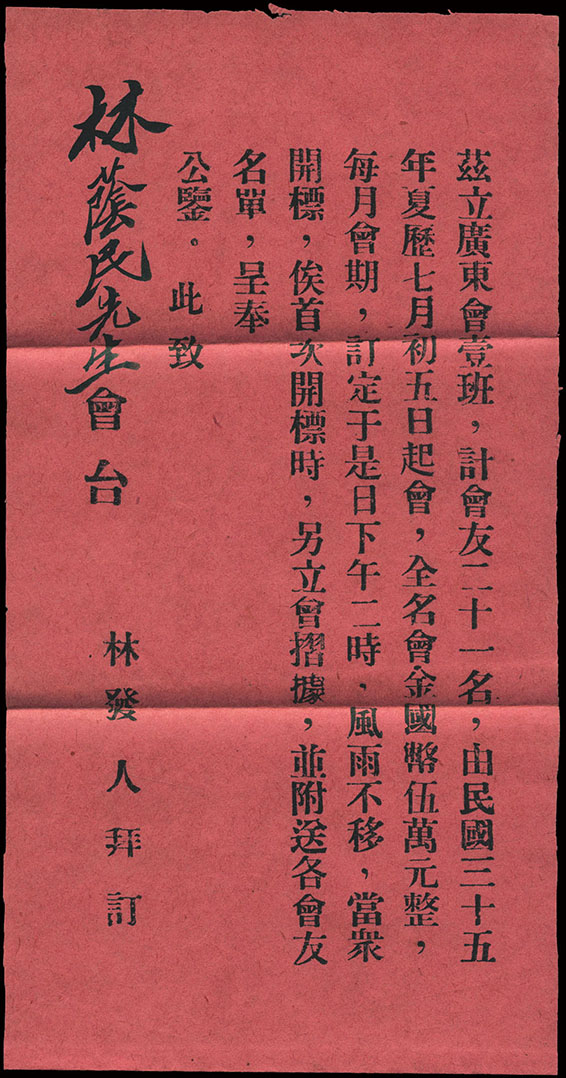 茲立廣東會壹班，計會友二十一名，由民國三十五
年夏歷七月初五日起會，全名會金國幣伍萬元整，
每月會期，訂定于是日下午二時，風雨不移，當衆
開標，俟首次開標時，另立會摺據，並附送各會友
名單，呈奉
公鑒。此致
林蔭民先生會台
林發人拜訂